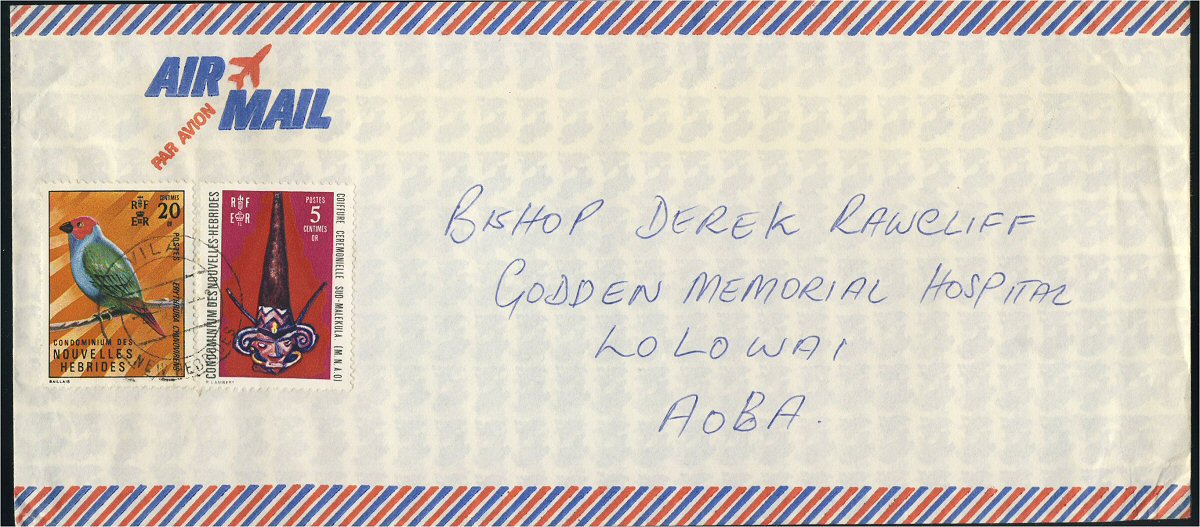 AIR
MAIL
PAR AVION
RF
ER
CENTIMES
20
OR
POSTES
CONDOMINIUM DES
NOUVELLES
HÉBRIDES
BAILLAIS
RF
ER
POSTES
5
CENTIMES
OR
CONDOMINIUM DES NOUVELLES-HEBRIDES
COIFFURE CEREMONIELLE SUD-MALEKULA (M N A O)
P. LAMBERT
VILA
NEW HEBRIDES
BISHOP DEREK RAWCLIFF
GODDEN MEMORIAL HOSPITAL
LOLOWAI
AOBA.